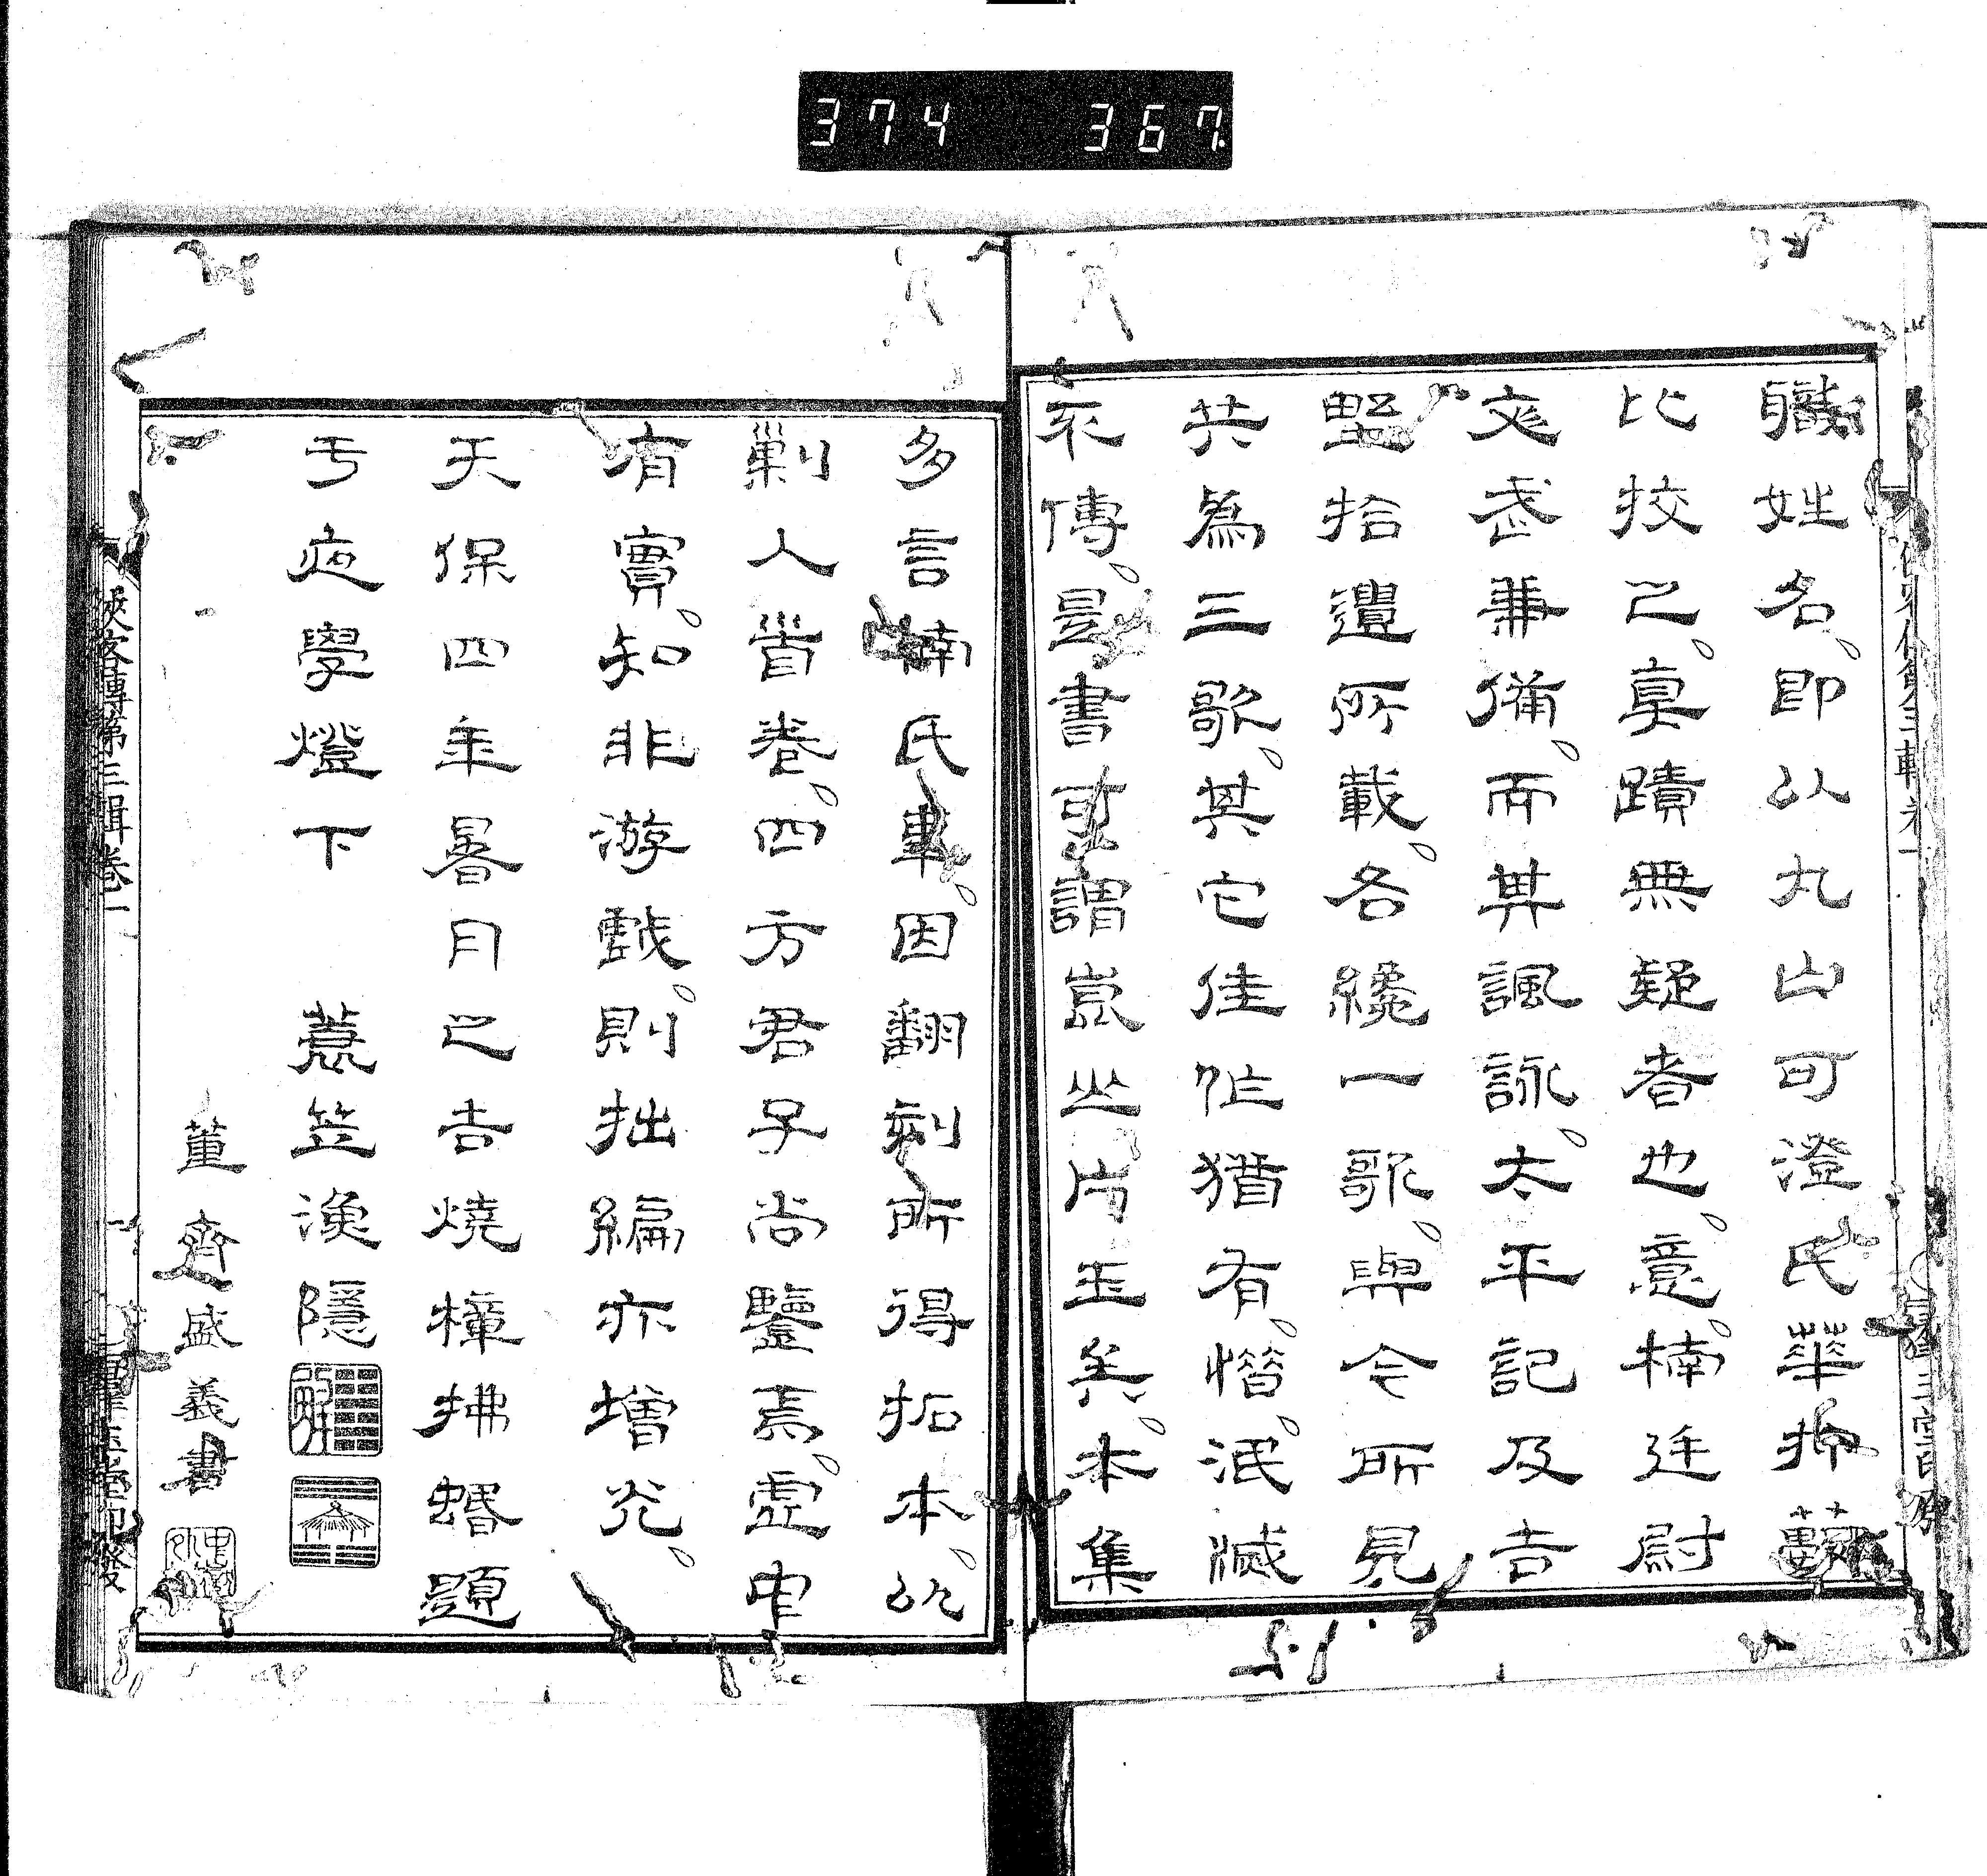 374 367
職姓名、即以九山可澄氏華押藪
比挍之、真蹟無疑者也、意、楠廷尉
文武兼備、而其諷詠、太平記及吉
野拾遺所載、各纔一歌、與今所見
共為三歌、其它佳作猶有、惜、泯滅
不傳、是書可謂崑山片玉矣、本集
多言楠氏事、因翻刻所得拓本、以
剿人首卷、四方君子尚鑒焉、虛中
有實、知非游戲、則拙編亦增光、
天保四年暑月之吉燒樟拂蟁題
于夜學燈下 蓑笠漁隱
董齋盛義書
俠客傳第三輯卷一